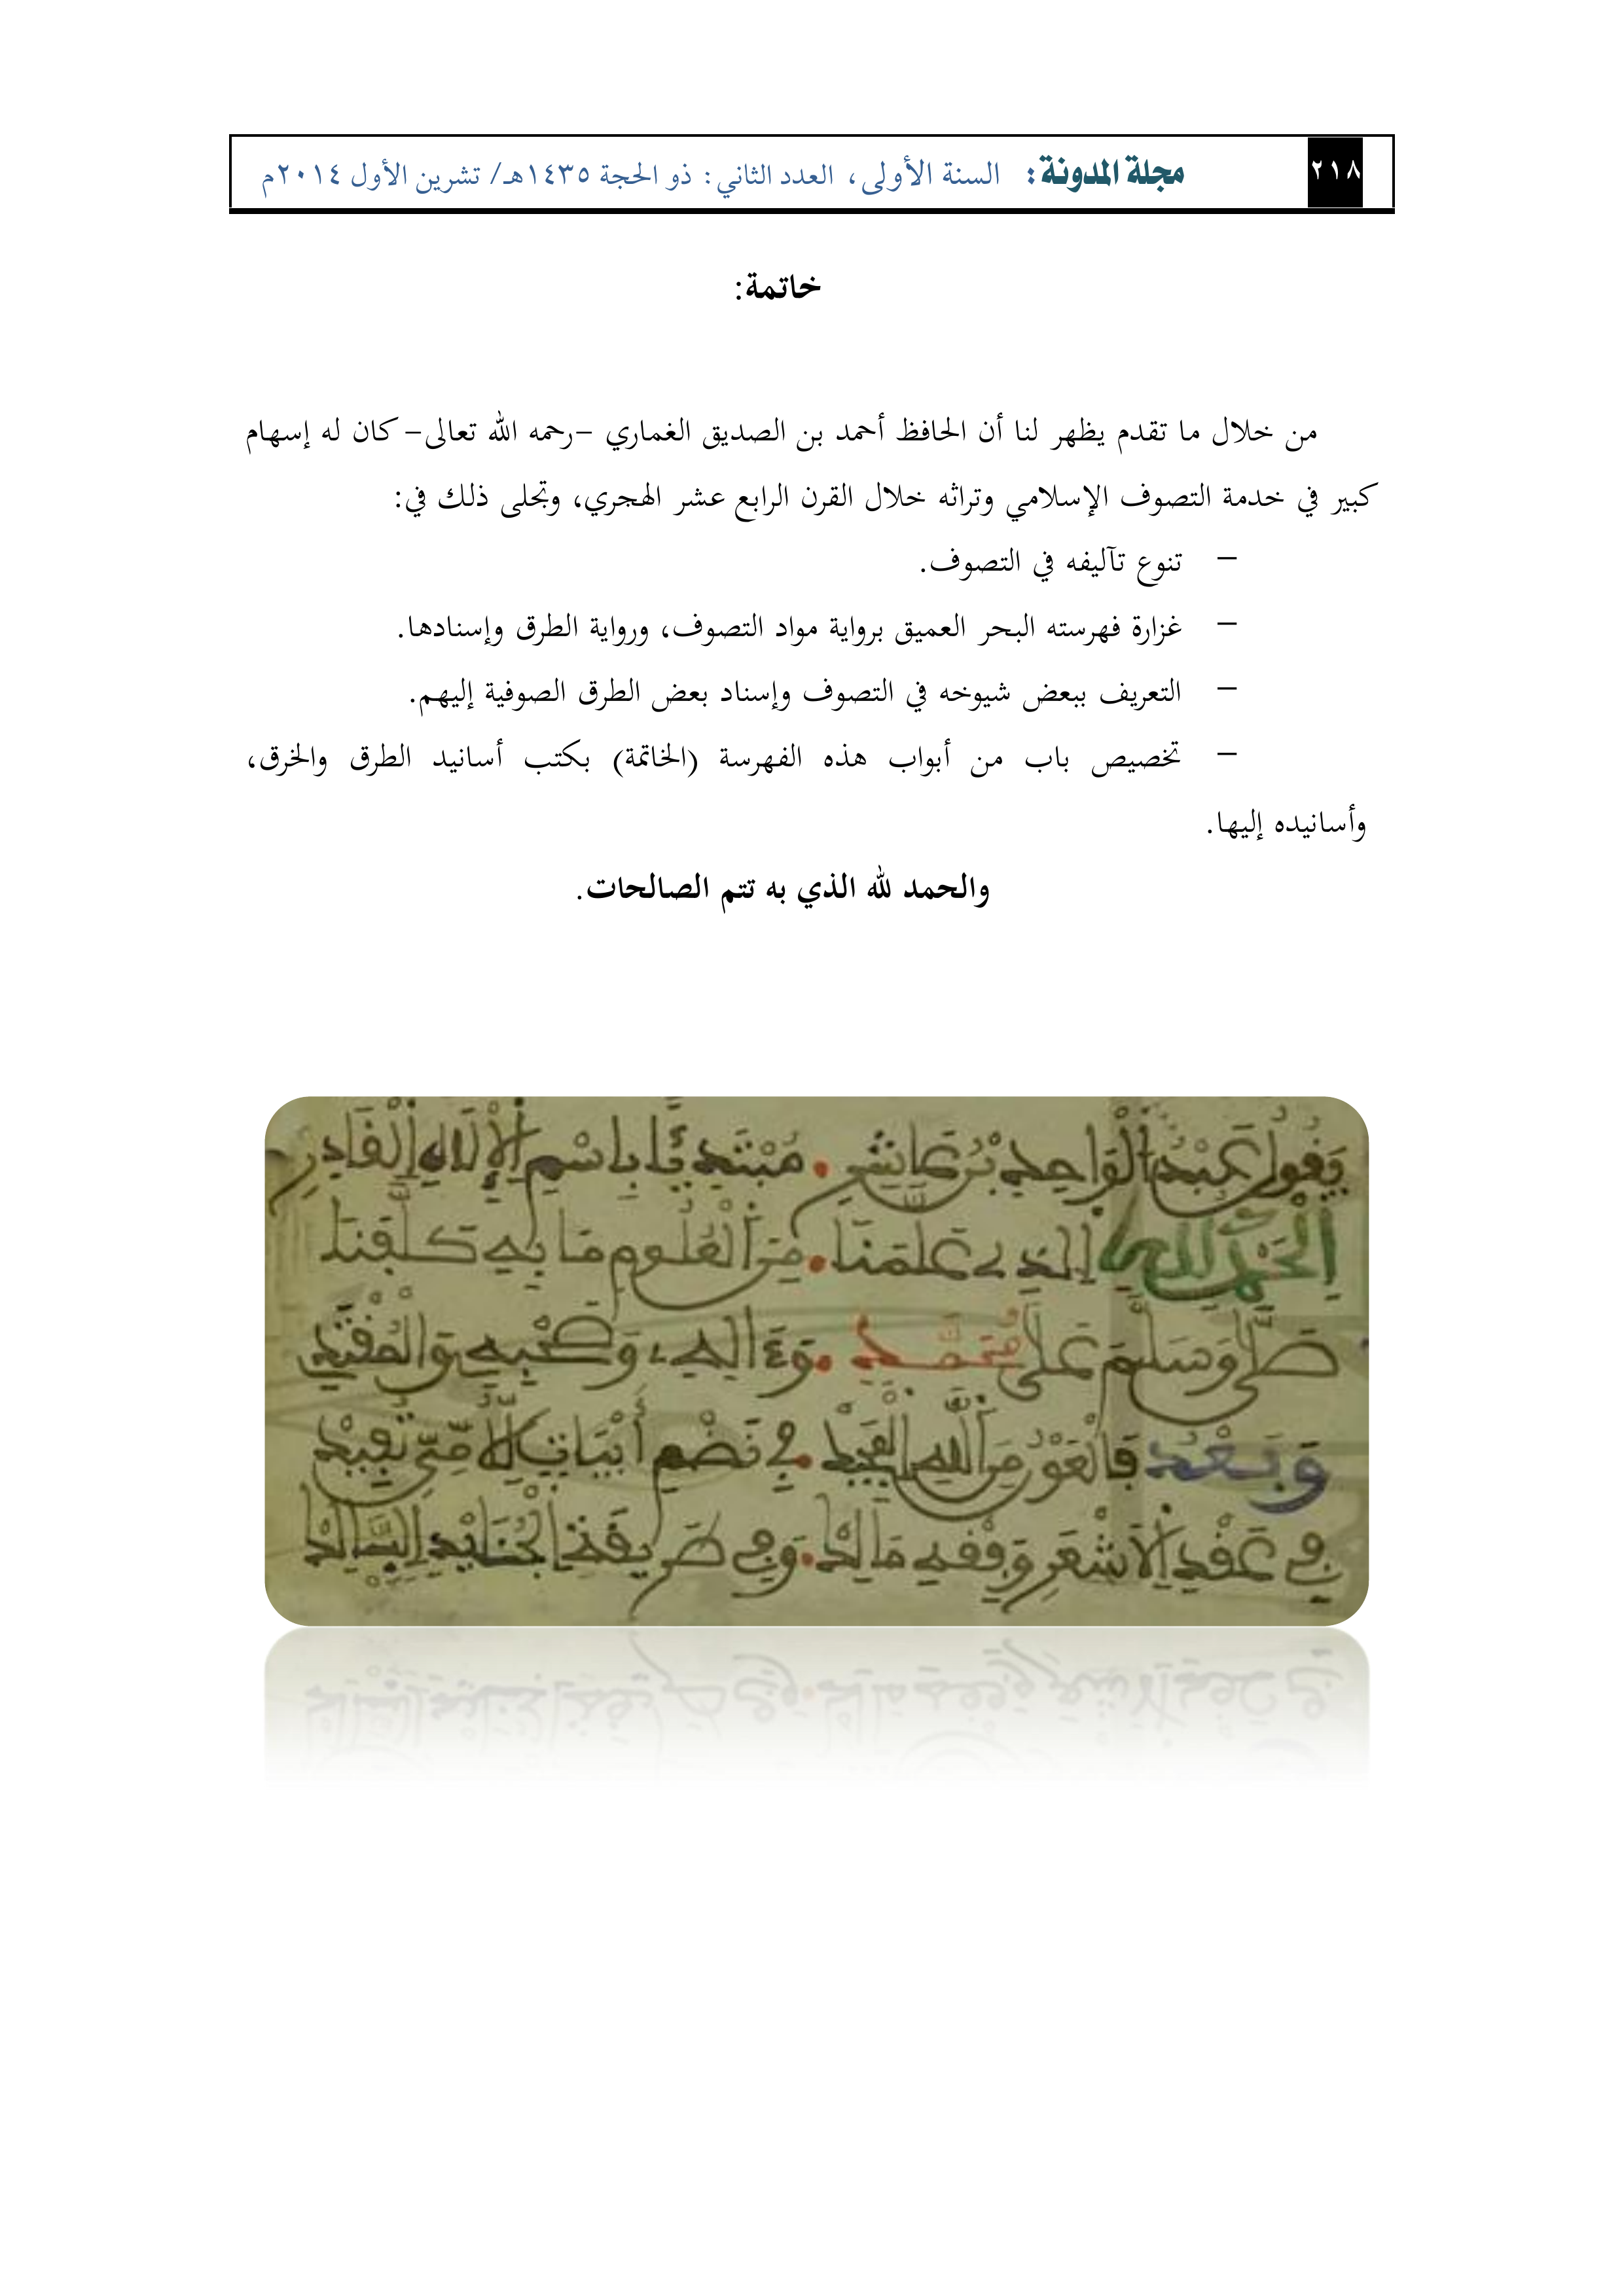 ٢١٨ مجلة المدونة: السنة الأولى، العدد الثاني: ذو الحجة ١٤٣٥هـ/ تشرين الأول ٢٠١٤م
خاتمة:
من خلال ما تقدم يظهر لنا أن الحافظ أحمد بن الصديق الغماري –رحمه الله تعالى– كان له إسهام
كبير في خدمة التصوف الإسلامي وتراثه خلال القرن الرابع عشر الهجري، وتجلى ذلك في:
– تنوع تآليفه في التصوف.
– غزارة فهرسته البحر العميق برواية مواد التصوف، ورواية الطرق وإسنادها.
– التعريف ببعض شيوخه في التصوف وإسناد بعض الطرق الصوفية إليهم.
– تخصيص باب من أبواب هذه الفهرسة (الخاتمة) بكتب أسانيد الطرق والخرق،
وأسانيده إليها.
والحمد لله الذي به تتم الصالحات.
يَقُولُ عَبْدُ الْوَاحِدِ بْنُ عَاشِرِ . مُبْتَدِئًا بِاسْمِ الْإِلَهِ الْقَادِرِ
الْحَمْدُ لِلَّهِ الَّذِي عَلَّمَنَا . مِنَ الْعُلُومِ مَا بِهِ كَلَّفَنَا
صَلَّى وَسَلَّمَ عَلَى مُحَمَّدٍ . وَءَالِهِ وَصَحْبِهِ وَالْمُقْتَدِ
وَبَعْدُ فَالْعَوْنُ مِنَ اللَّهِ الْمَجِيدْ . فِي نَضْمِ أَبْيَاتٍ لِلْأُمِّيِّ تُفِيدْ
فِي عَقْدِ الْأَشْعَرِ وَفِقْهِ مَالِكْ . وَفِي طَرِيقَةِ الْجُنَيْدِ السَّالِكْ